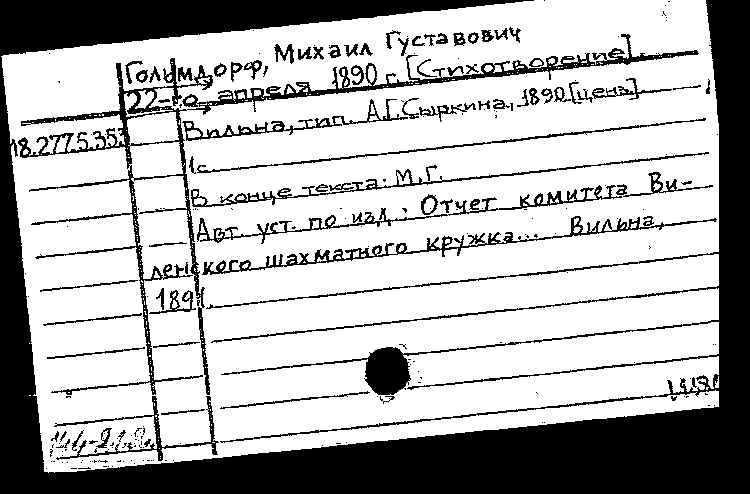 Гольмдорф, Михаил Густавович
22-го апреля 1890 г. [Стихотворение].
Вильна, тип. А.Г. Сыркина, 1890 [ценз.]
18.277.5.353
1с.
В конце текста: М.Г.
Авт. уст. по изд.: Отчет комитета Ви-
ленского шахматного кружка... Вильна,
1891.